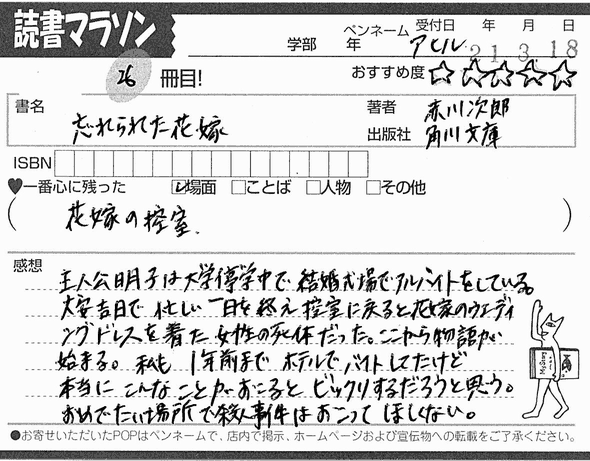 読書マラソン
学部 年 ペンネーム アヒル 受付日 年 月 日
21 3.18
26 冊目! おすすめ度 ☆☆☆☆☆
書名 忘れられた花嫁 著者 赤川次郎
出版社 角川文庫
ISBN
♥一番心に残った ☑場面 □ことば □人物 □その他
( 花嫁の控室. )
感想
主人公明子は大学停学中で結婚式場でアルバイトをしている。
大安吉日で忙しい一日を終え控室に戻ると花嫁のウェディ
ングドレスを着た女性の死体だった。ここから物語が
始まる。私も1年前までホテルでバイトしてたけど
本当にこんなことがおこるとビックリするだろうと思う。
おめでたい場所で殺人事件はおこってほしくない。
●お寄せいただいたPOPはペンネームで、店内で掲示、ホームページおよび宣伝物への転載をご了承ください。